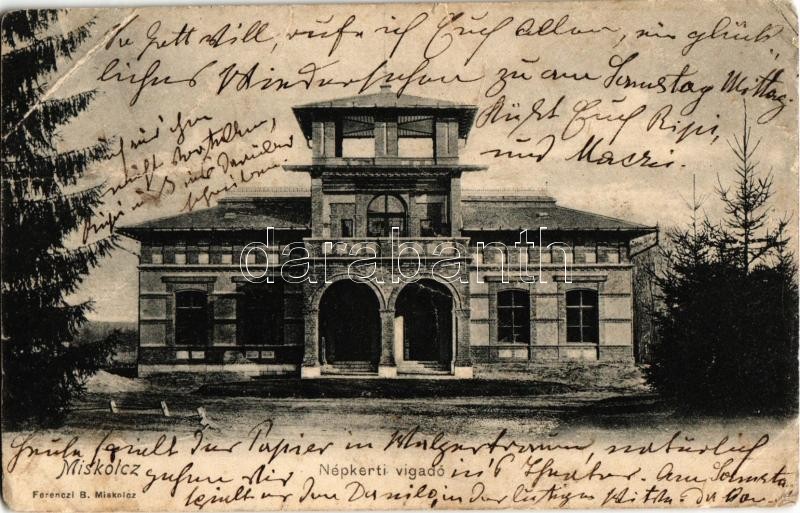 So Gott will, rufe ich Euch allen, ein glück
liches Wiedersehen zu am Samstag Mittag.
Küßt Euch Pipi,
und Maczi.
nicht vorstellen,
schreiben.
darabanth
Heute spielt der Papier in Walzertraum, natürlich
gehen wir ins Theater. Am Samsta
spielt er den Danilo, in der lustigen Witwe
Miskolcz
Népkerti vigadó
Ferenczi B. Miskolcz